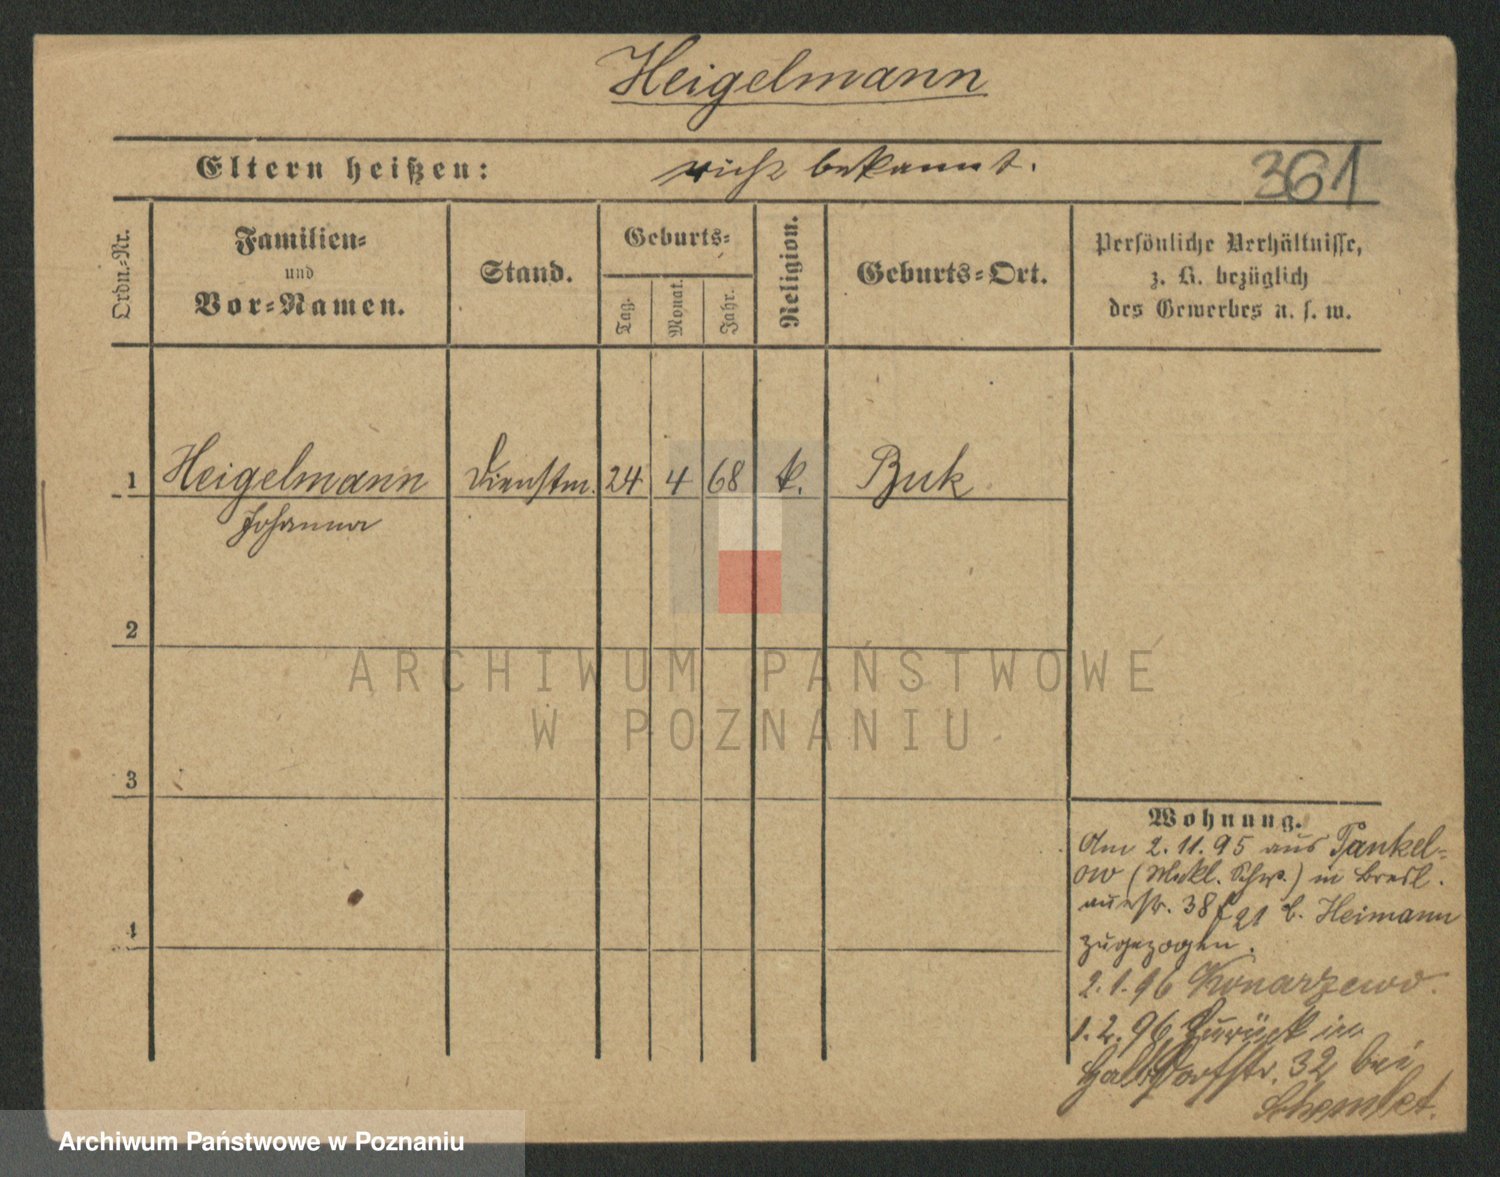 Heigelmann
Eltern heißen: nicht bekannt.
361
Ordn.-Nr.
Familien-
und
Vor-Namen.
Stand.
Geburts-
Tag.
Monat.
Jahr.
Religion.
Geburts-Ort.
Persönliche Verhältnisse,
z. B. bezüglich
des Gewerbes u. s. w.
1 Heigelmann Dienstm. 24 4 68 k. Buk
Johanna
2
ARCHIWUM PAŃSTWOWE
W POZNANIU
3
Wohnung.
Am 2.11.95 aus Tankel-
ow (Meckl. Schw.) in Bresl.
38 b. Heimann
4
zugezogen.
2.1.96 Konarzewo.
1.2.96 Zurück in
Halbdorfstr. 32 bei
Archiwum Państwowe w Poznaniu